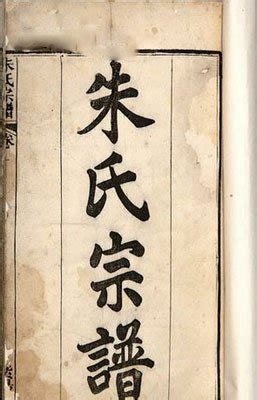 朱氏宗譜
朱氏宗譜